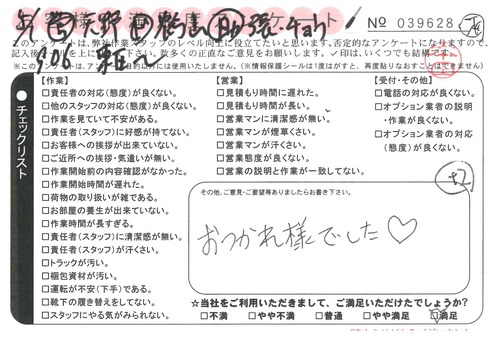 お客様満足度アンケート
№ 039628
このアンケートは、弊社作業スタッフのレベル向上に役立てたいと思います。否定的なアンケートになりますので、
記入後シールを上に
数多くの正直なご意見をお願いします。✓印は、いくつでも結構です。
※このアンケートは、
目的以外には使用いたしません。(※情報保護シールは1度はがすと、再度貼りなおすことはできません)
9/26
チェックリスト
【作業】
□責任者の対応(態度)が良くない。
□他のスタッフの対応(態度)が良くない。
□作業を見ていて不安がある。
□責任者(スタッフ)に好感が持てない。
□お客様への挨拶が出来ていない。
□ご近所への挨拶・気遣いが無い。
□作業開始前の内容確認がなかった。
□作業開始時間が遅れた。
□荷物の取り扱いが雑である。
□お部屋の養生が出来ていない。
□作業時間が長すぎる。
□責任者(スタッフ)に清潔感が無い。
□責任者(スタッフ)が汗くさい。
□トラックが汚い。
□梱包資材が汚い。
□運転が不安(下手)である。
□靴下の履き替えをしてない。
□スタッフにやる気がみられない。
【営業】
□見積もり時間に遅れた。
□見積もり時間が長い。
□営業マンに清潔感が無い。
□営業マンが煙草くさい。
□営業マンが汗くさい。
□営業態度が良くない。
□営業の説明と作業が一致してない。
【受付・その他】
□電話の対応が良くない。
□オプション業者の説明
・作業が良くない。
□オプション業者の対応
(態度)が良くない。
その他、ご意見・ご要望等ありましたらお書き下さい。
おつかれ様でした♡
☆当社をご利用いただきまして、ご満足いただけたでしょうか?
□不満 □やや不満 □普通 □やや満足 □満足